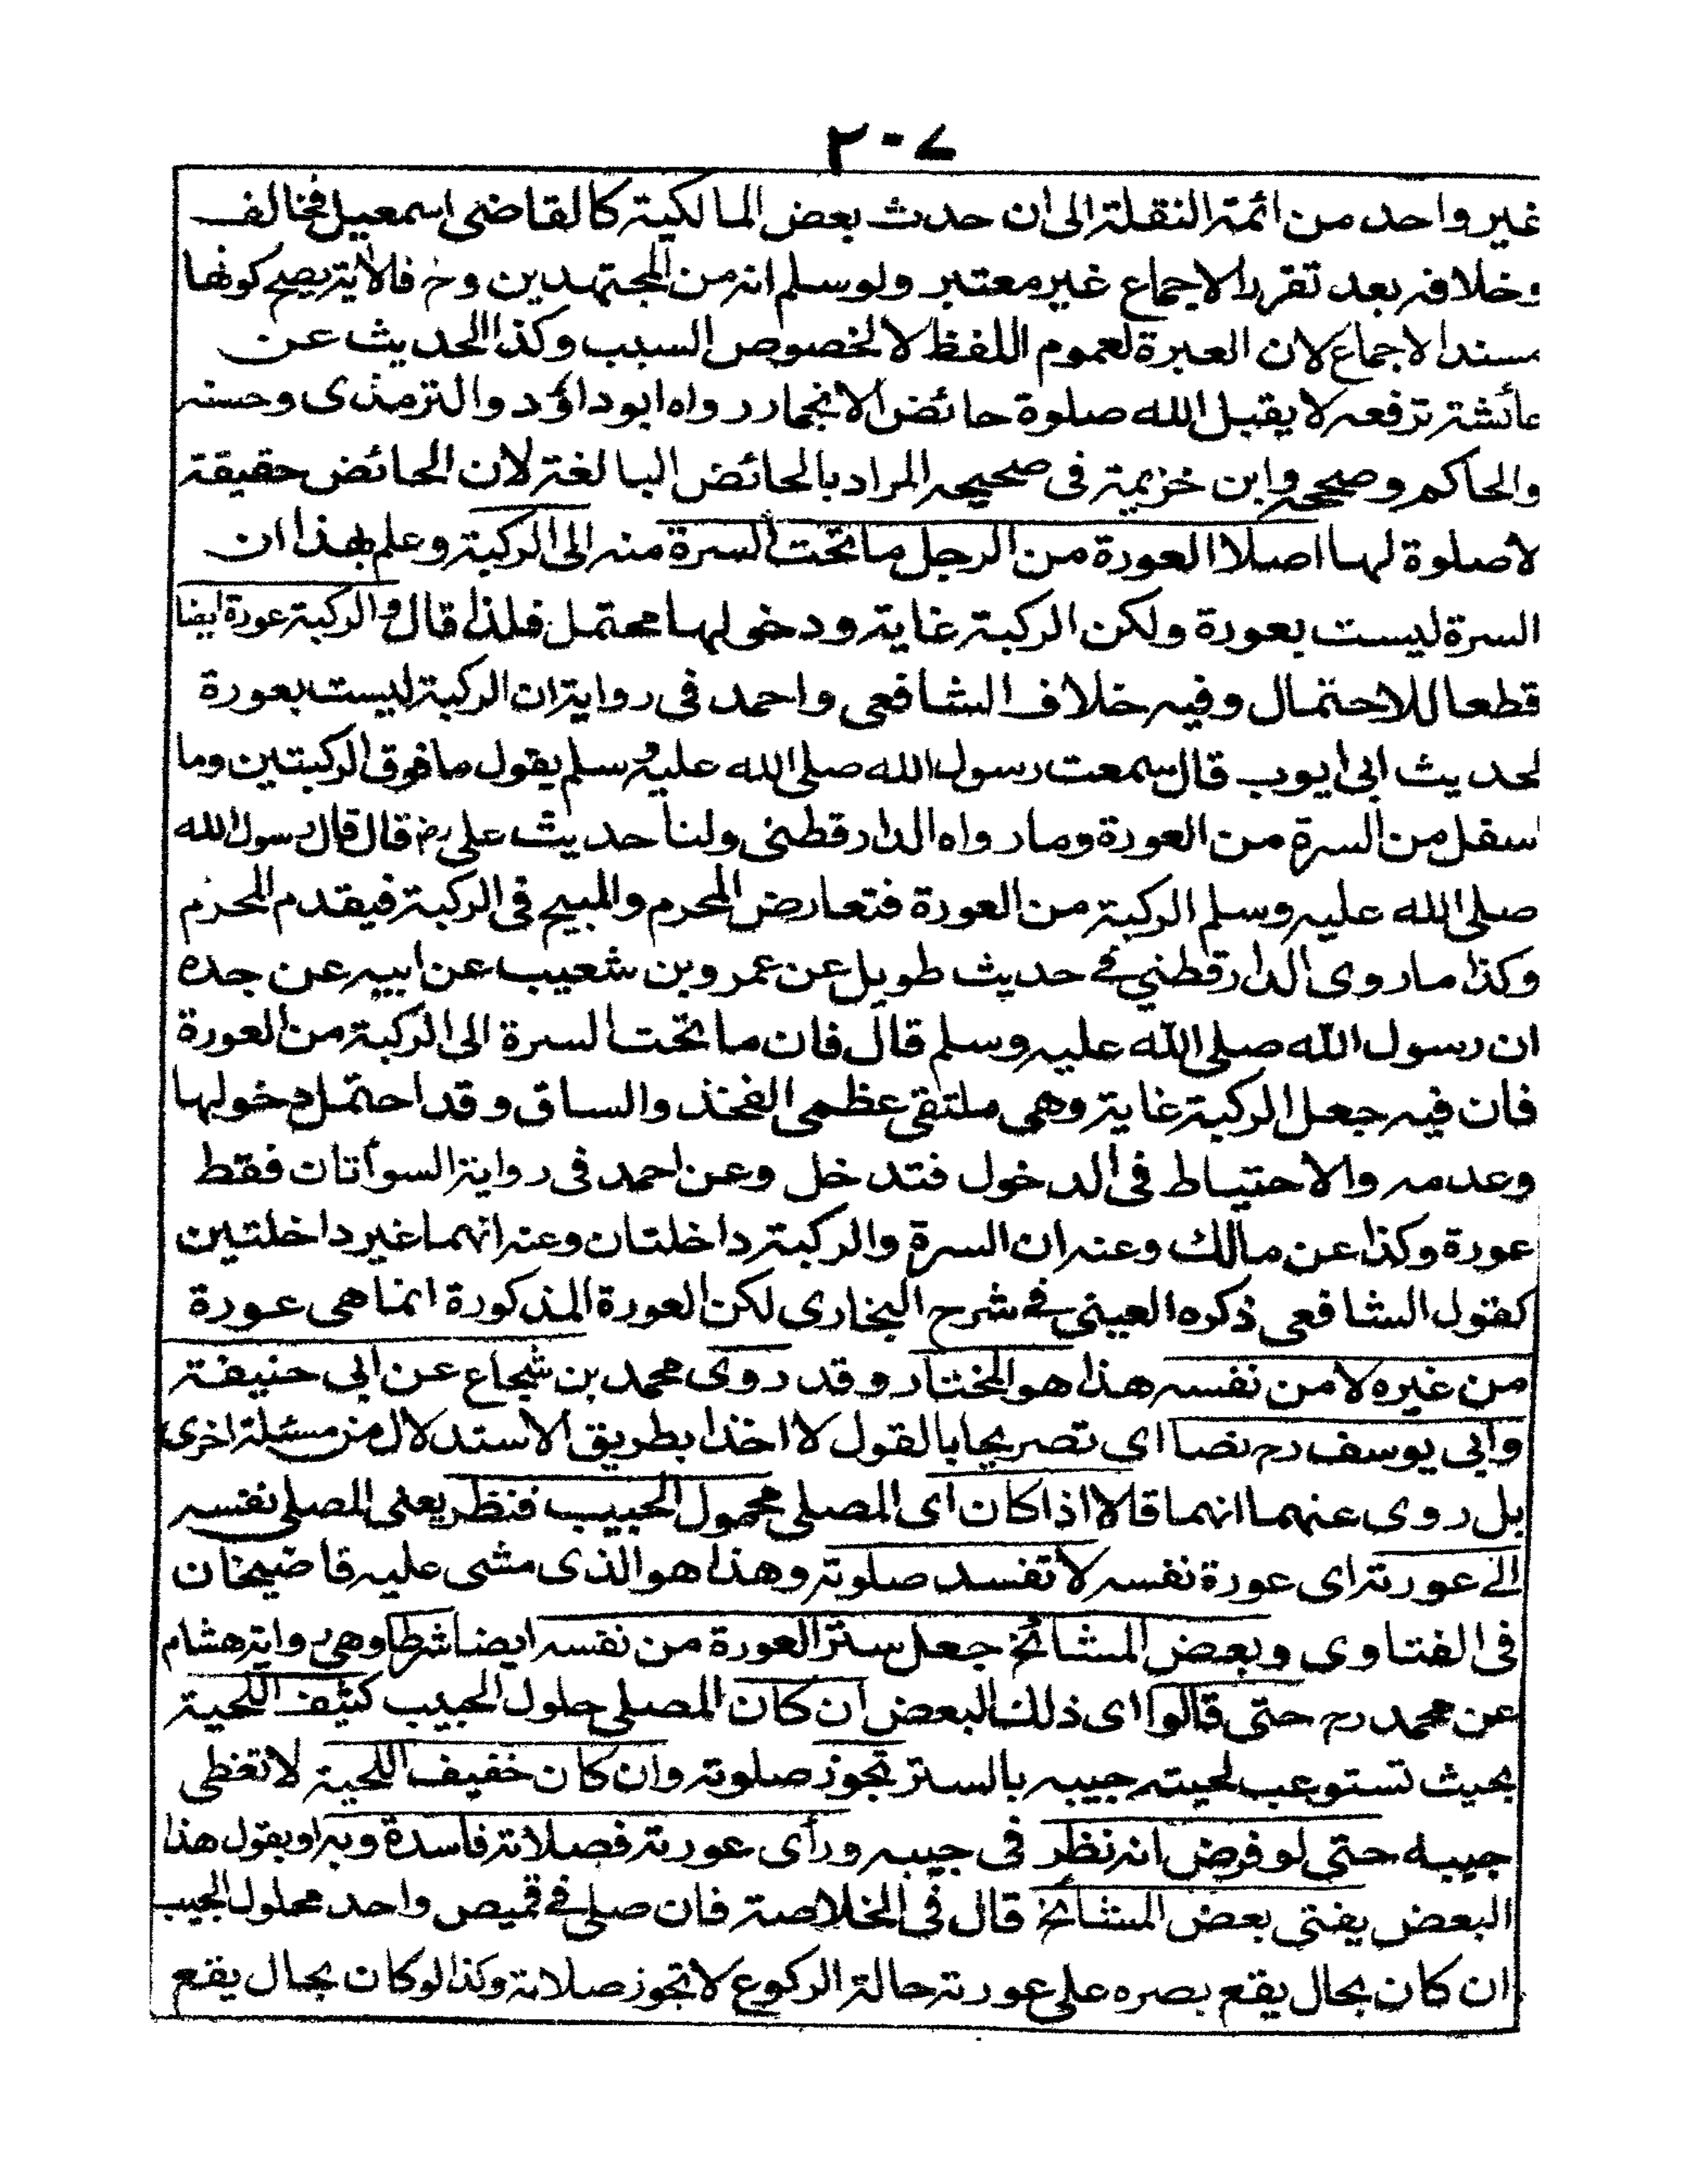 ٢٠٧
غير واحد من ائمة النقلة الى ان حدث بعض المالكية كالقاضى اسمعيل فخالف
وخلافه بعد تقرر الاجماع غير معتبر ولو سلم انه من المجتهدين وح فالاية يصح كونها
مسند الاجماع لان العبرة لعموم اللفظ لا لخصوص السبب وكذا الحديث عن
عائشة ترفعه لا يقبل الله صلوة حائض الا بخمار رواه ابو داؤد والترمذى وحسنه
والحاكم وصححه وابن خزيمة فى صحيحه المراد بالحائض البالغة لان الحائض حقيقة
لاصلوة لها اصلا العورة من الرجل ما تحت السرة منه الى الركبة وعلم بهذا ان
السرة ليست بعورة ولكن الركبة غاية ودخولها محتمل فلذا قال والركبة عورة ايضا
قطعا للاحتمال وفيه خلاف الشافعى واحمد فى رواية ان الركبة ليست بعورة
لحديث ابى ايوب قال سمعت رسول الله صلى الله عليه وسلم يقول ما فوق الركبتين وما
اسفل من السرة من العورة وما رواه الدارقطنى ولنا حديث على رض قال قال رسول الله
صلى الله عليه وسلم الركبة من العورة فتعارض المحرم والمبيح فى الركبة فيقدم المحرم
وكذا ما روى الدارقطني فى حديث طويل عن عمرو بن شعيب عن ابيه عن جده
ان رسول الله صلى الله عليه وسلم قال فان ما تحت السرة الى الركبة من العورة
فان فيه جعل الركبة غاية وهى ملتقى عظمى الفخذ والساق وقد احتمل دخولها
وعدمه والاحتياط فى الدخول فتدخل وعن احمد فى رواية السوأتان فقط
عورة وكذا عن مالك وعنه ان السرة والركبة داخلتان وعنه انهما غير داخلتين
كقول الشافعى ذكره العينى فى شرح البخارى لكن العورة المذكورة انما هى عورة
من غيره لا من نفسه هذا هو المختار وقد روى محمد بن شجاع عن ابى حنيفة
وابى يوسف رح نصا اى تصريحا بالقول لا اخذا بطريق الاستدلال من مسئلة اخرى
بل روى عنهما انهما قالا اذا كان اى المصلى محمول الجيب فنظر يعنى المصلى نفسه
الى عورته اى عورة نفسه لا تفسد صلوته وهذا هو الذى مشى عليه قاضيخان
فى الفتاوى وبعض المشائخ جعل ستر العورة من نفسه ايضا شرطا وهى رواية هشام
عن محمد رح حتى قالوا اى ذلك البعض ان كان المصلى حلول الجيب كثيف اللحية
بحيث تستوعب لحيته جيبه بالستر تجوز صلوته وان كان خفيف اللحية لا تغطى
جيبه حتى لو فرض انه نظر فى جيبه ورأى عورته فصلاته فاسدة وبه او بقول هذا
البعض يفتى بعض المشائخ قال فى الخلاصة فان صلى فى قميص واحد محلول الجيب
ان كان بحال يقع بصره على عورته حالة الركوع لا تجوز صلاته وكذا لو كان بحال يقع